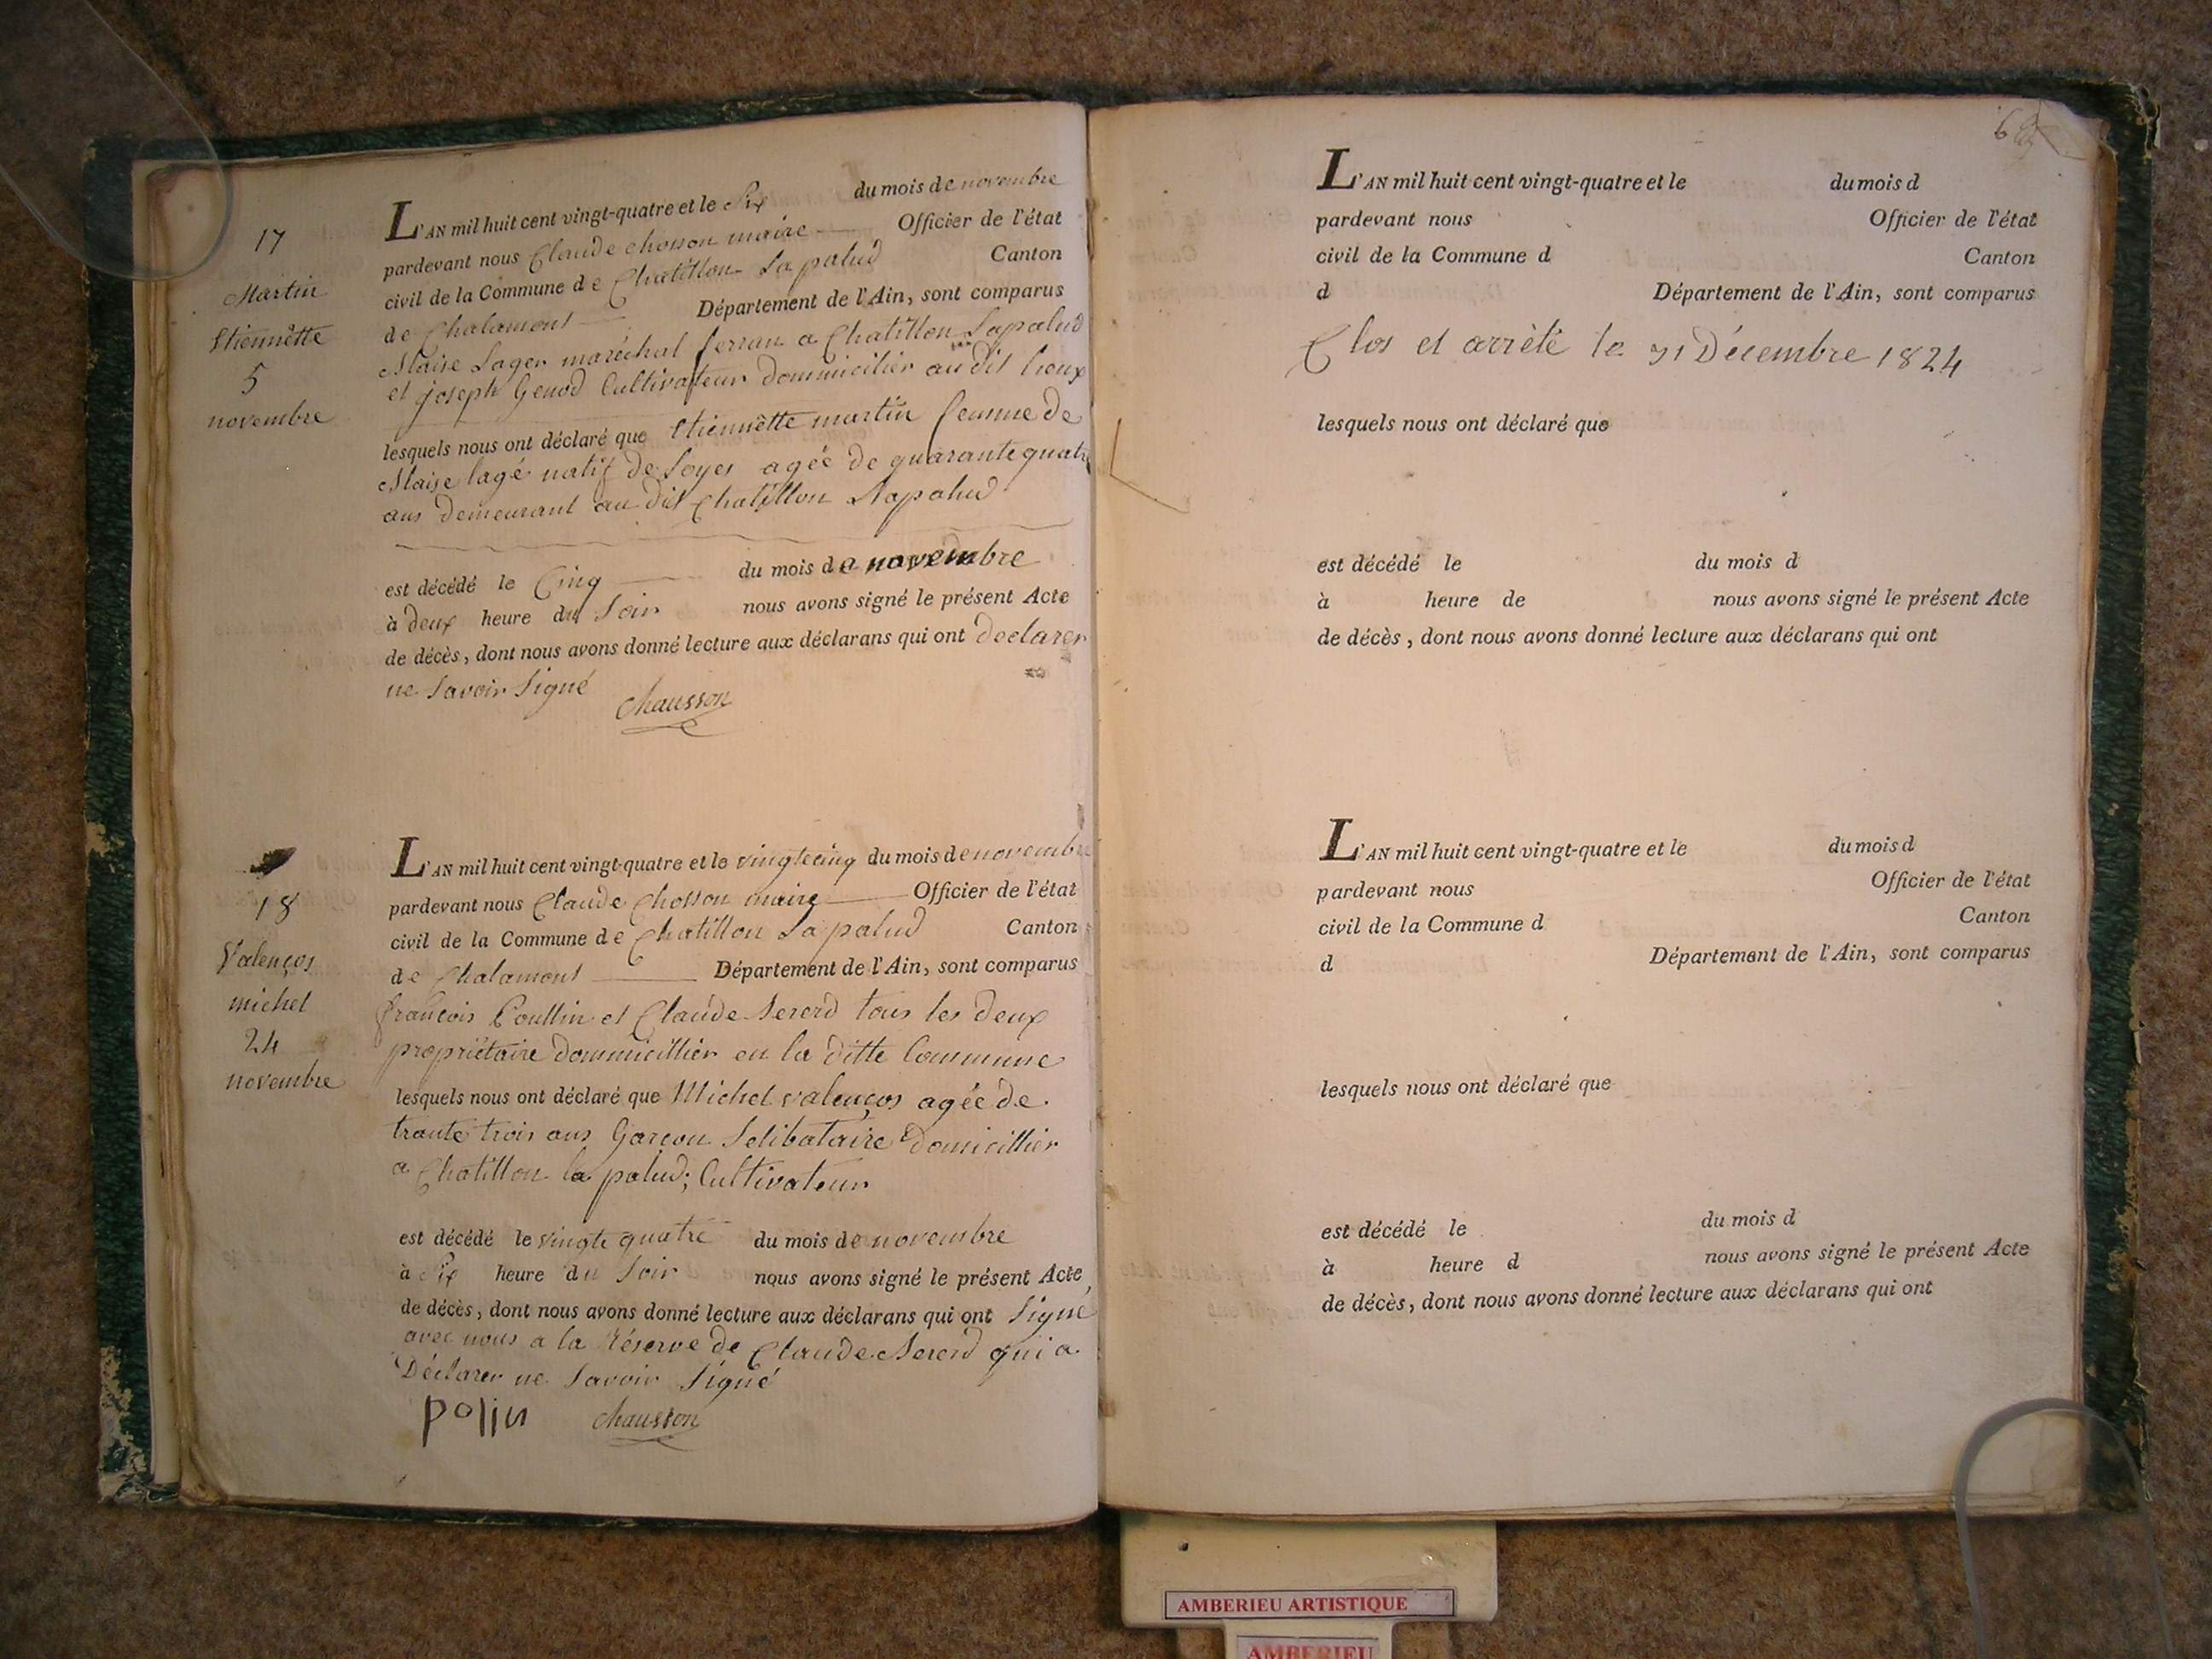 17
Martin
Etiennêtte
5
novembre
L'AN mil huit cent vingt-quatre et le Six du mois de novembre
pardevant nous Claude chosson maire Officier de l'état
civil de la Commune de Chatillon La palud Canton
de Chalamont Département de l'Ain, sont comparus
Blaise Lager maréchal ferran a Chatillon Lapalud
et joseph Genod Cultivateur dommicilier au dit lieux
lesquels nous ont déclaré que Etiennêtte martin femme de
Blaise lagé natif de Loyes agée de quarante quatre
ans demeurant au dit Chatillon Lapalud
est décédé le Cinq du mois de novembre
à deux heure du Soir nous avons signé le présent Acte
de décès, dont nous avons donné lecture aux déclarans qui ont declarer
ne Savoir Signé
chausson
18
Valenços
michel
24
novembre
L'AN mil huit cent vingt-quatre et le vingtecinq du mois de novembre
pardevant nous Claude Chosson maire Officier de l'état
civil de la Commune de Chatillon La palud Canton
de Chalamont Département de l'Ain, sont comparus
françois Poullin et Claude Sererd tous les deux
propriétaire dommicillier en la ditte Commune
lesquels nous ont déclaré que Michel valenços agée de
trante trois ans Garçon Selibataire domicillier
a Chatillon la palud; Cultivateur
est décédé le vingte quatre du mois de novembre
à Six heure du Soir nous avons signé le présent Acte
de décès, dont nous avons donné lecture aux déclarans qui ont Signé
avec nous a la Réserve de Claude Sererd qui a
Déclarer ne Savoir Signé
polin chausson
L'AN mil huit cent vingt-quatre et le du mois d
pardevant nous Officier de l'état
civil de la Commune d Canton
d Département de l'Ain, sont comparus
Clos et arrêté le 31 Décembre 1824
lesquels nous ont déclaré que
est décédé le du mois d
à heure de nous avons signé le présent Acte
de décès, dont nous avons donné lecture aux déclarans qui ont
L'AN mil huit cent vingt-quatre et le du mois d
pardevant nous Officier de l'état
civil de la Commune d Canton
d Département de l'Ain, sont comparus
lesquels nous ont déclaré que
est décédé le du mois d
à heure d nous avons signé le présent Acte
de décès, dont nous avons donné lecture aux déclarans qui ont
AMBERIEU ARTISTIQUE
AMBERIEU